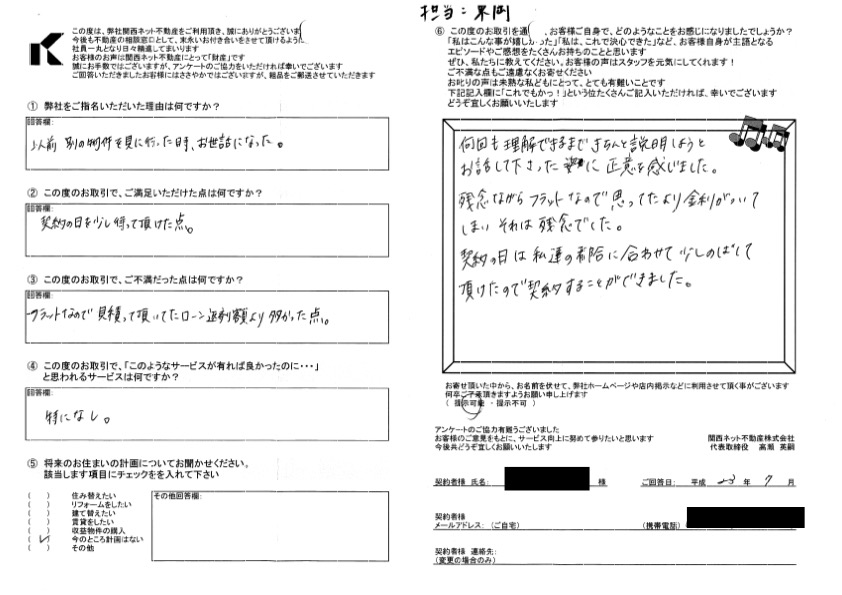 この度は、弊社関西ネット不動産をご利用頂き、誠にありがとうございま
今後も不動産の相談窓口として、末永いお付き合いをさせて頂けるよう
社員一丸となり日々精進してまいります
お客様のお声は関西ネット不動産にとって「財産」です
誠にお手数ではございますが、アンケートのご協力をいただければ幸いでございます
ご回答いただきましたお客様にはささやかではございますが、粗品をご郵送させていただきます
① 弊社をご指名いただいた理由は何ですか？
回答欄:
以前 別の物件を見に行った時、お世話になった。
② この度のお取引で、ご満足いただけた点は何ですか？
回答欄:
契約の日を少し待って頂けた点。
③ この度のお取引で、ご不満だった点は何ですか？
回答欄:
フラットなので 見積って頂いてたローン返済額より多かった点。
④ この度のお取引で、「このようなサービスが有れば良かったのに・・・」
と思われるサービスは何ですか？
回答欄:
特になし。
⑤ 将来のお住まいの計画についてお聞かせください。
該当します項目にチェックをを入れて下さい
( ) 住み替えたい
( ) リフォームをしたい
( ) 建て替えたい
( ) 賃貸をしたい
( ) 収益物件の購入
( ✓ ) 今のところ計画はない
( ) その他
その他回答欄:
担当：
⑥ この度のお取引を通 、お客様ご自身で、どのようなことをお感じになりましたでしょうか？
「私はこんな事が嬉しかった」「私は、これで決心できた」など、お客様自身が主語となる
エピソードやご感想をたくさんお持ちのことと思います
ぜひ、私たちに教えてください、お客様の声はスタッフを元気にしてくれます！
ご不満な点もご遠慮なくお寄せください
お叱りの声は未熟な私どもにとって、とても有難いことです
下記記入欄に「これでもか！」という位たくさんご記入いただければ、幸いでございます
どうぞ宜しくお願いいたします
何回も理解できるまできちんと説明しようと
お話して下さった に 誠意を感じました。
残念ながら フラットなので 思ってたより金利がついて
しまい それは 残念でした。
契約の日は 私達の都合に合わせて 少しのばして
頂けたので契約することができました。
お寄せ頂いた中から、お名前を伏せて、弊社ホームページや店内掲示などに利用させて頂く事がございます
何卒ご了承頂きますようお願い申し上げます
( 提示可能 ・ 提示不可 )
アンケートのご協力有難うございました
お客様のご意見をもとに、サービス向上に努めて参りたいと思います
今後共どうぞ宜しくお願いいたします
関西ネット不動産株式会社
代表取締役 高瀬 英嗣
契約者様 氏名: 様 ご回答日: 平成 23 年 7 月
契約者様
メールアドレス: (ご自宅) (携帯電話)
契約者様 連絡先:
(変更の場合のみ)